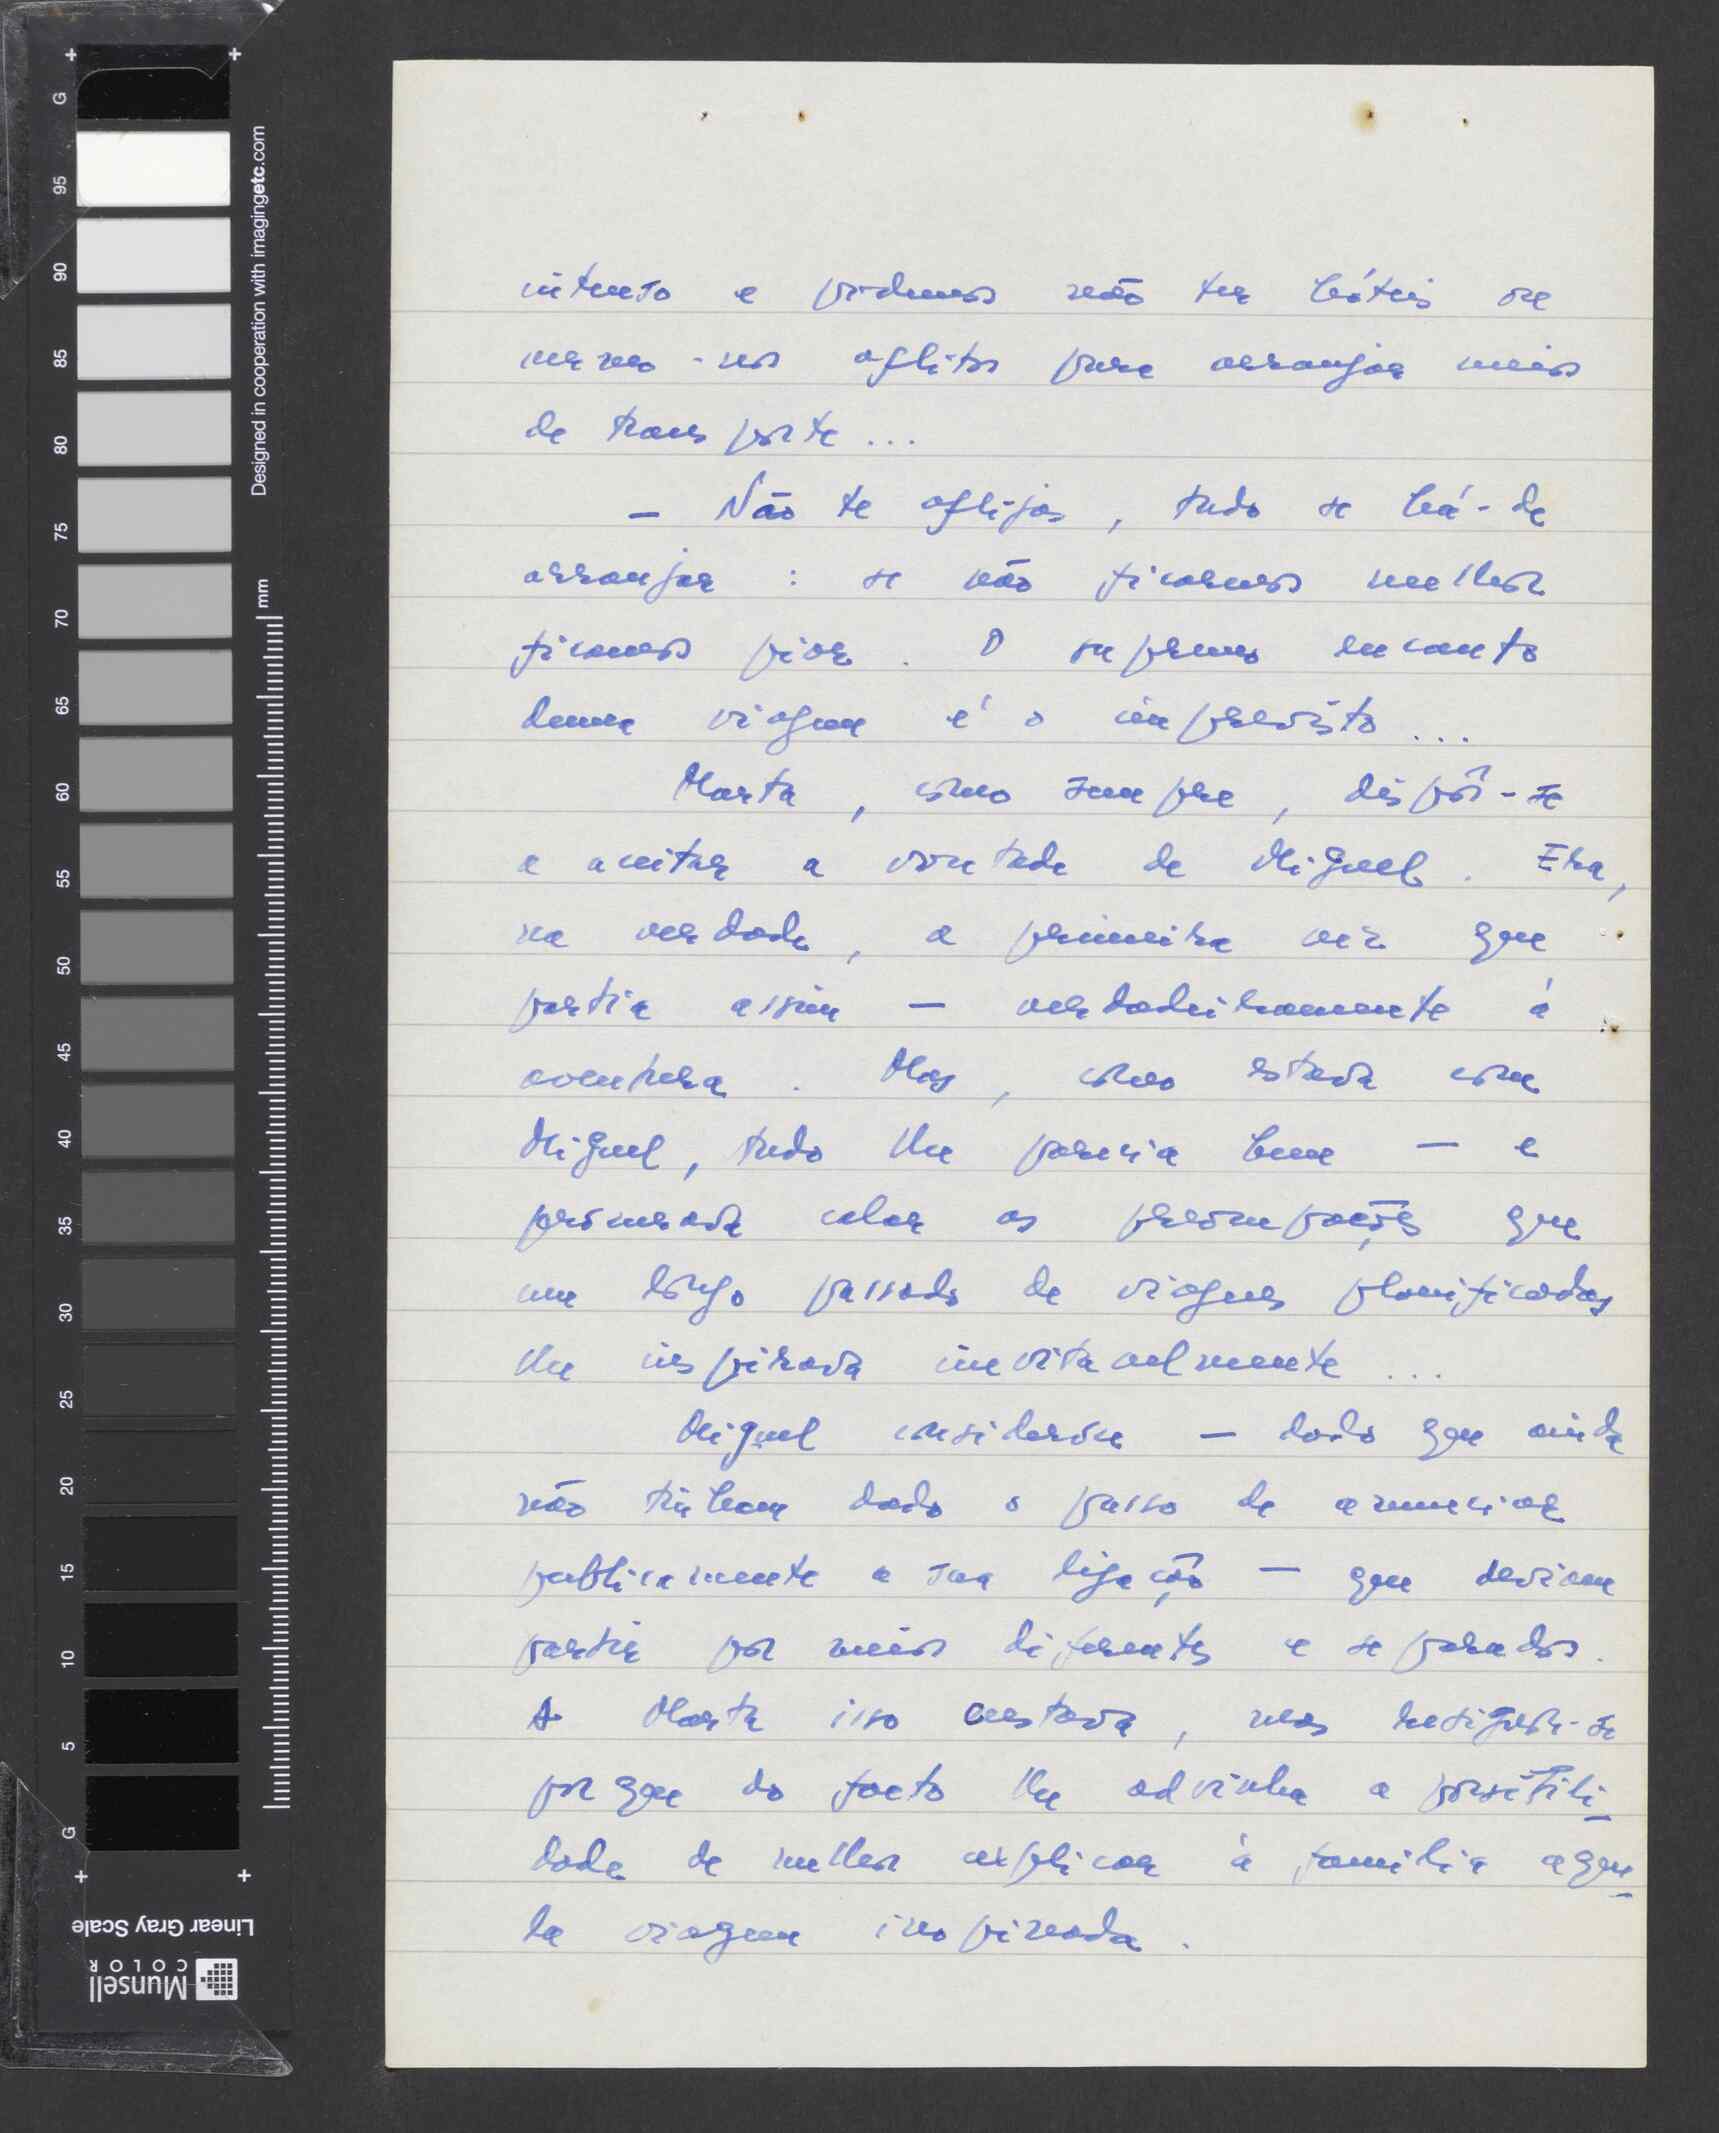 intenso e podemos não ter hóteis ou
vermo-nos aflitos para arranjar meios
de transporte...
— Não te aflijas, tudo se há-de
arranjar : se não ficarmos melhor
ficamos pior. O supremo encanto
duma viagem é o imprevisto...
Marta, como sempre, dispôs-se
a aceitar a vontade de Miguel. Era,
na verdade, a primeira vez que
partia assim — verdadeiramente à
aventura. Mas, como estava com
Miguel, tudo lhe parecia bem — e
procurava calar as preocupações que
um longo passado de viagens planificadas
lhe inspirava inevitavelmente...
Miguel considerou — dado que ainda
não tinham dado o passo de anunciar
publicamente a sua ligação — que deviam
partir por meios diferentes e separados.
A Marta isso custava, mas resignou-se
porque do facto lhe advinha a possibili-
dade de melhor explicar à família aque-
la viagem inopinada.
G
95
90
85
80
75
70
65
60
55
50
45
40
35
30
25
20
15
10
5
G
Designed in cooperation with imagingetc.com
mm
Linear Gray Scale
Munsell
COLOR